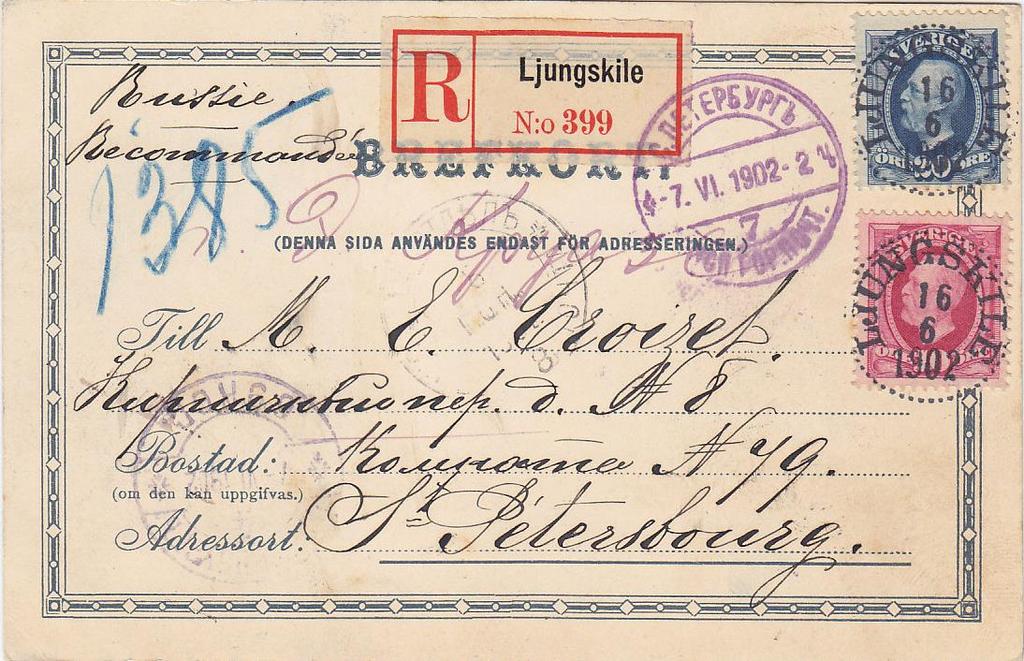 Russie.
Recommandée
1385
R Ljungskile
N:o 399
BREFKORT.
(DENNA SIDA ANVÄNDES ENDAST FÖR ADRESSERINGEN.)
С.ПЕТЕРБУРГЪ
-7. VI. 1902 - 2 ч
7
SVERIGE
ÖRE 20 ÖRE
LJUNGSKILE
16
6
SVERIGE
LJUNGSKILE
16
6
1902
Till M. E. Croizet.
Кирпичный пер. д. № 8
Bostad: Комната № 79.
(om den kan uppgifvas.)
Adressort. St Pétersbourg.